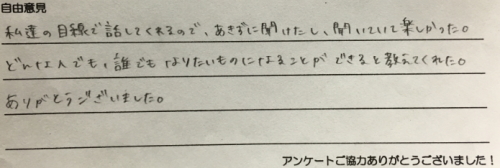 自由意見
私達の目線で話してくれるので、あきずに聞けたし、聞いていて楽しかった。
どんな人でも、誰でもなりたいものになることができると教えてくれた。
ありがとうございました。
アンケートご協力ありがとうございました！